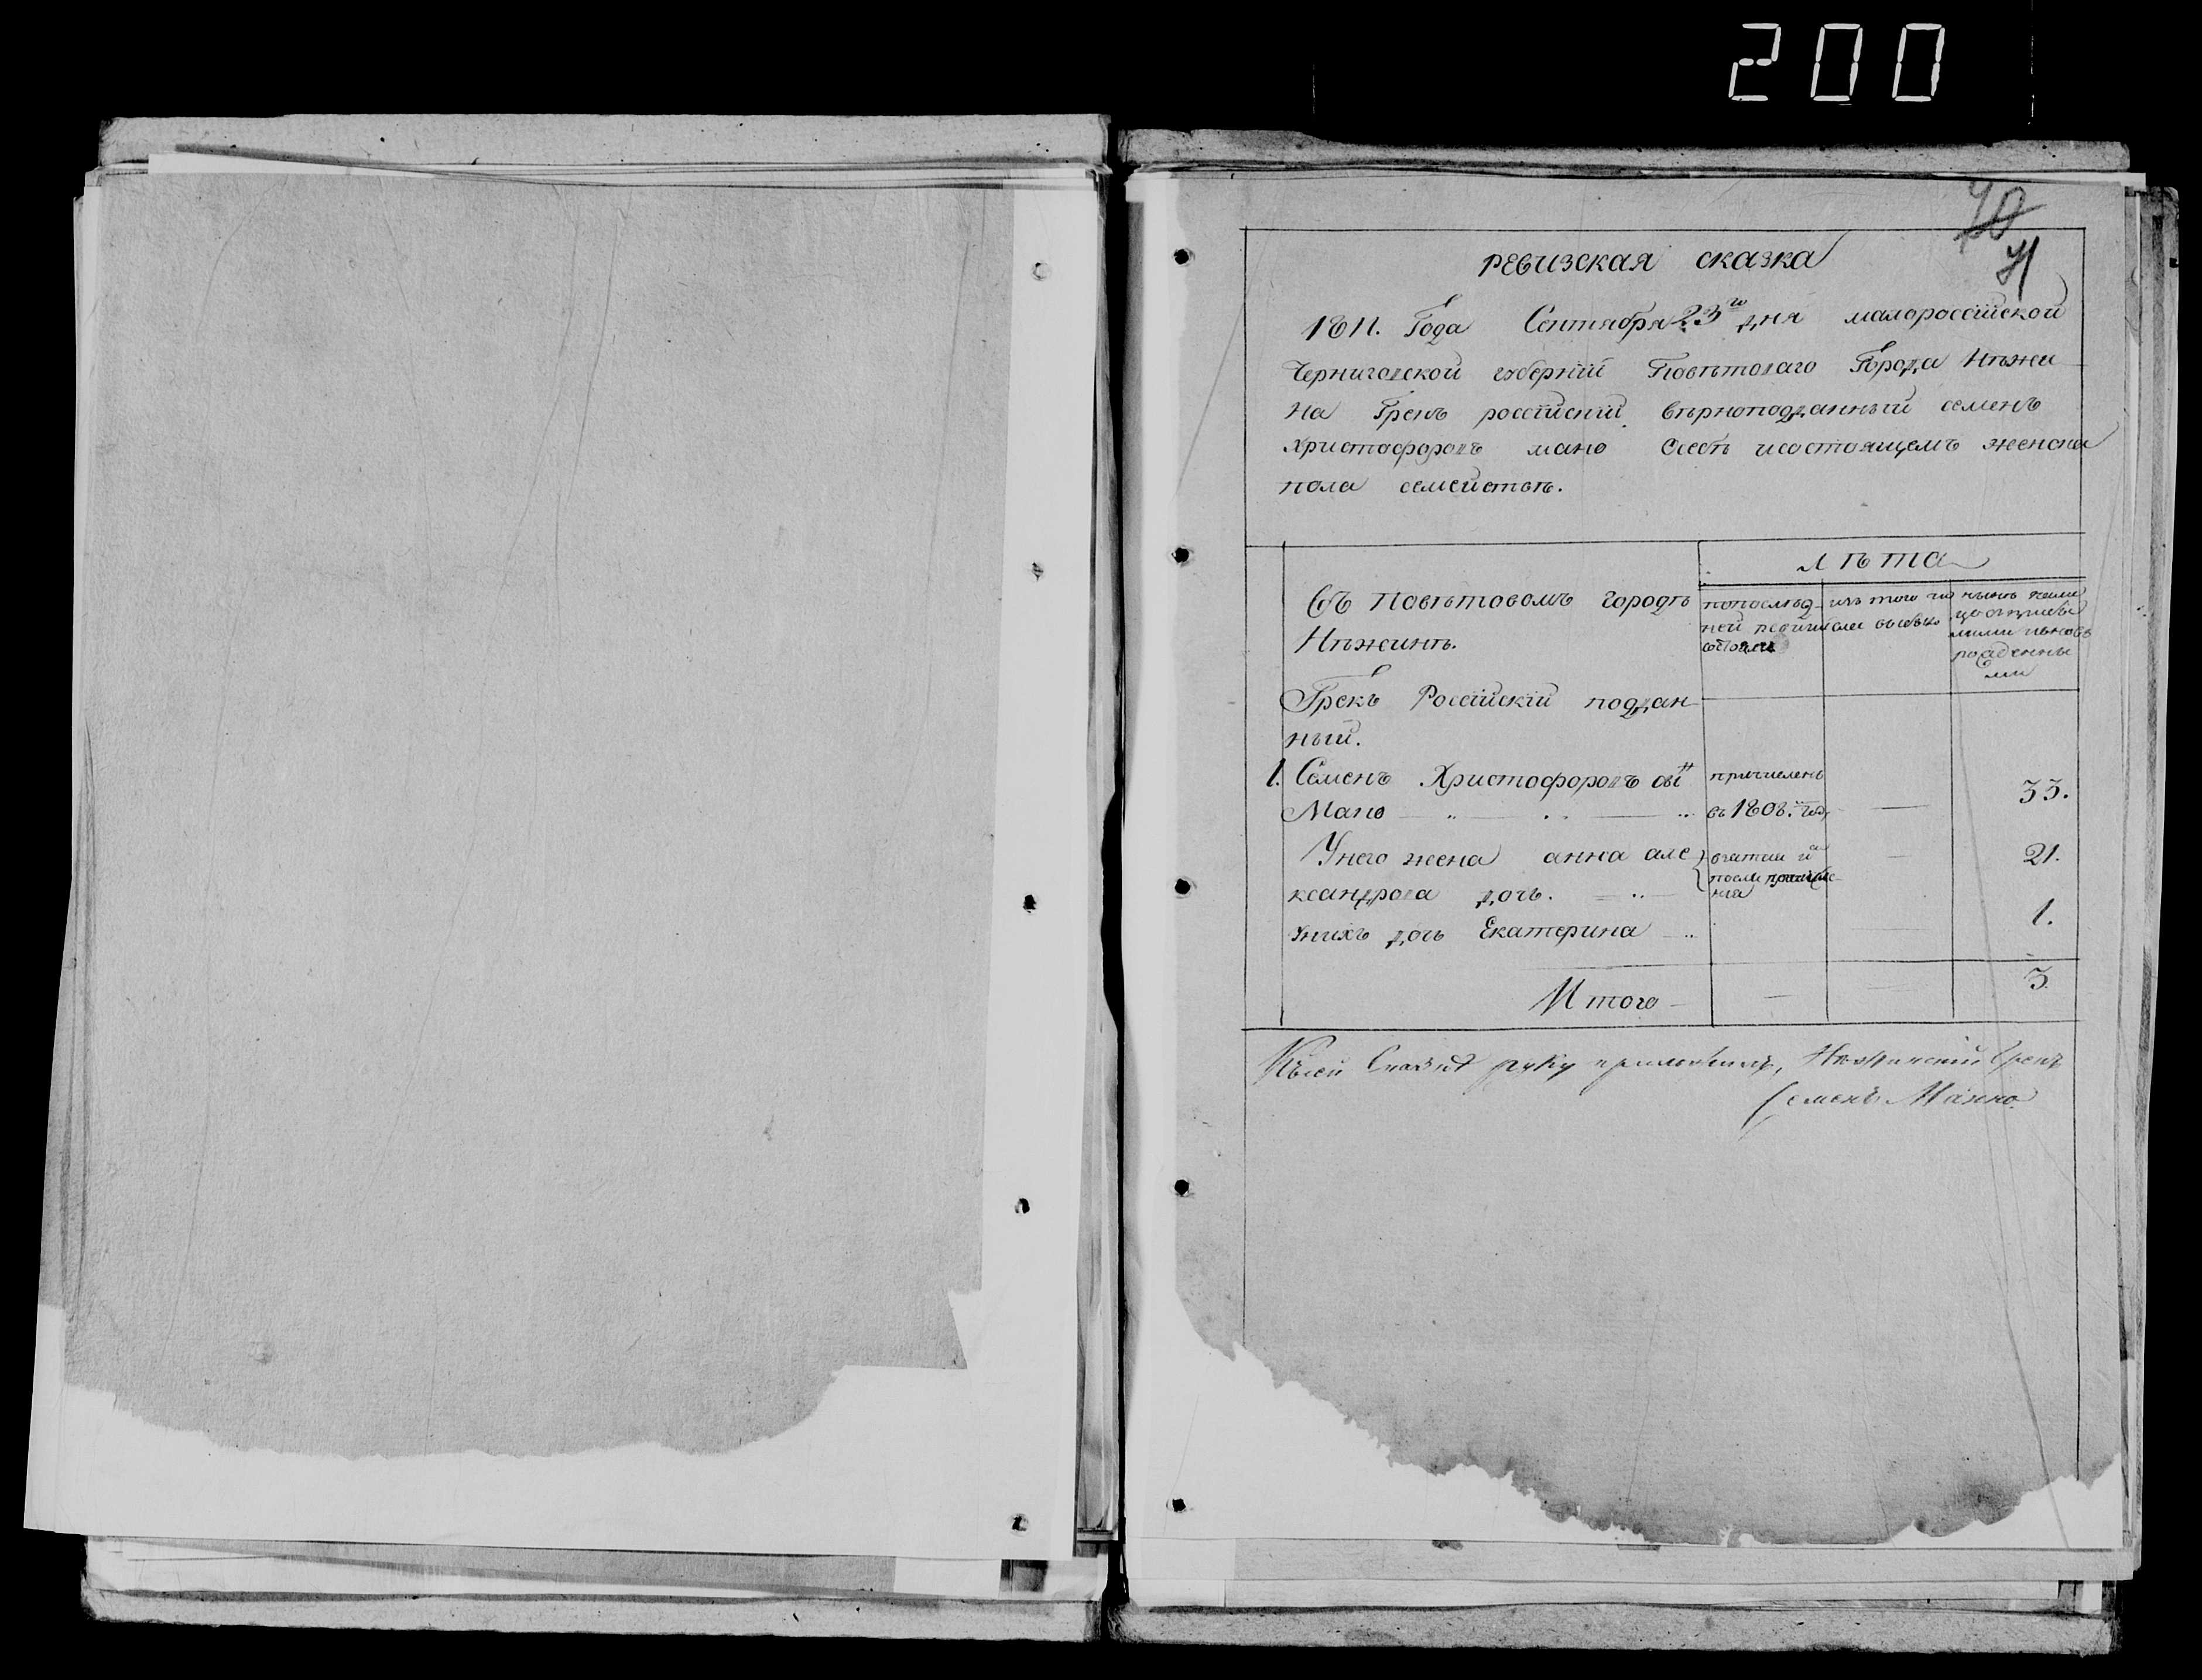 200
70
71
РЕВИЗСКАЯ СКАЗКА
1811. Года Сентября 23го дня малороссiйской
Черниговской губернiи Повѣтоваго Города Нѣжи
на Грекъ россiйскiй вѣрноподданный семенъ
Христофоровъ мано Осебѣ исостоящемъ женска
пола семействѣ.
лѣта
Въ Повѣтовомъ городѣ
Нѣжинѣ.
попослѣд
ней ревизiи
состояли
изъ того чи
сла выбыло
нынѣ нали
цо
ми
рожденны
ми
Грекъ Россiйскiй поддан
ный.
1. Семенъ Христофоровъ сы͡н
Мано
причисленъ
въ 1808. год,
33.
Унего жена анна але
ксандрова дочь.
после причисле
нiя
21.
унихъ дочь Екатерина
1.
Итого
3
Ксей Сказки руку приложилъ, Нѣжинскiй Грекъ
Семенъ Манно.